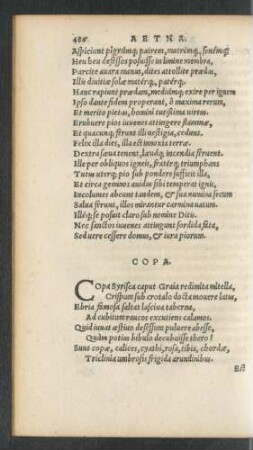 486 AETNA.
Aspiciunt pigrumq́; patrem, matremq́; senemq́;
Heu heu defessos posuisse in limine membra,
Parcite auara manus, dites attollite prædas,
Illis diuitiæ solæ materq́;, paterq́;.
Hanc rapient prædam, mediumq́; exire per ignem
Ipso dante fidem properant, ô maxima rerum,
Et merito pietas, homini tutissima virtus.
Erubuere pios iuuenes attingere flammæ,
Et quacunq́; ferunt illi uestigia, cedunt.
Felix illa dies, illa est innoxia terræ.
Dextra sæua tenent, læuaq́; incendia feruent.
Ille per obliquos igneis, fraterq́; triumphans
Tutus uterq́; pio sub pondere sufficit illa,
Et circa geminos auidus sibi temperat ignis,
Incolumes abeunt tandem, &amp; sua numina secum
Salua ferunt, illos mirantur carmina uatum.
Illosq́; se posuit claro sub nomine Ditis.
Nec sanctos iuuenes attingunt sordida fata,
Sed uere cessere domus, &amp; iura piorum.
COPA.
COpa Syrisca caput Graia redimita mitella,
Crispum sub crotalo docta mouere latus,
Ebria famosa saltat lasciua taberna,
Ad cubitum raucos excutiens calamos.
Quid iuuat æstiuo defessum puluere abesse,
Quàm potius bibulo decubuisse thoro?
Sunt copæ, calices, cyathi, rosa, tibia, chordæ,
Triclinia umbrosis frigida arundinibus.
Est